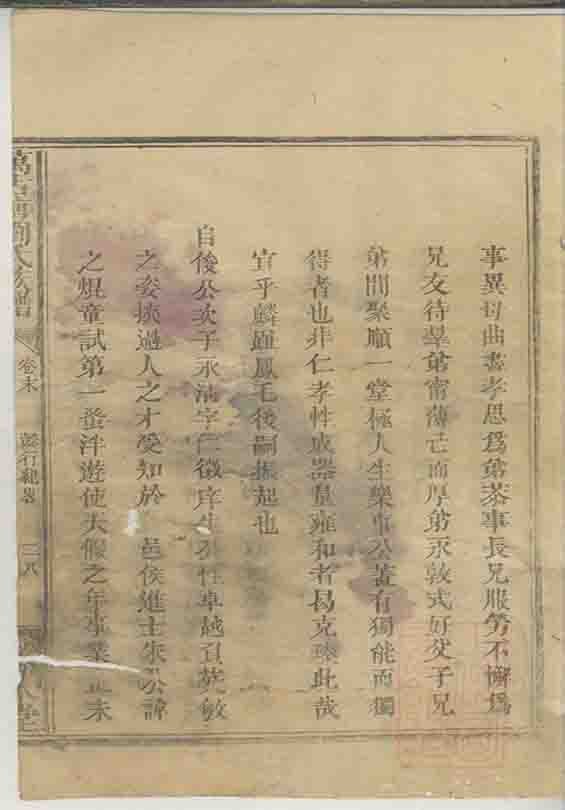 事異母曲盡孝思為弟恭事長兄服勞不懈為
兄友待羣弟甯薄己而厚弟永敦式好父子兄
弟間聚順一堂極人生樂事公蓋有獨能而獨
得者也非仁孝性成器量雍和者曷克臻此哉
宜乎麟趾鳳毛後嗣振起也
自俊公次子永清字仁徵庠生秉性卓越負英敏
之姿挾過人之才受知於 邑侯進士朱公諱
之焜童試第一蜚泮遊使天假之年事業正未
劉氏族譜
卷末
懿行紀畧
二八
堂